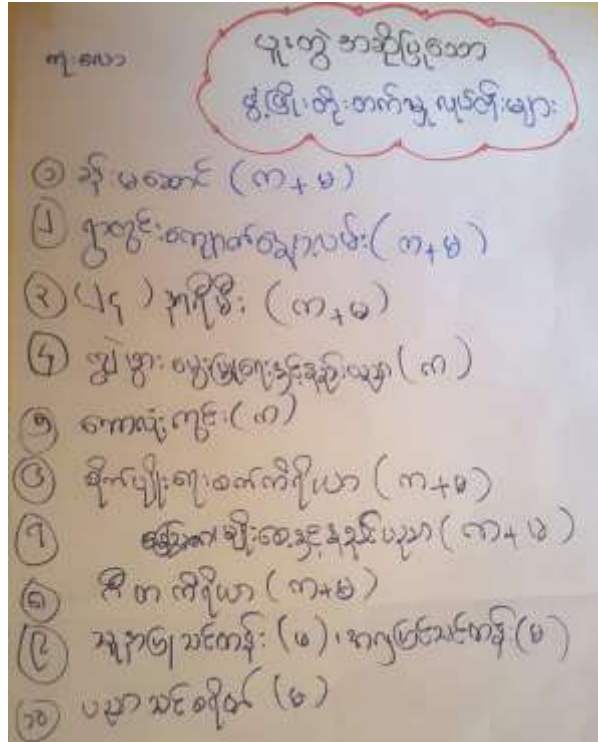 ကုံးလော
ပူးတွဲ အဆိုပြုသော
ဖွံ့ဖြိုးတိုးတက်မှု လုပ်ငန်းများ
၁ ခန်းမဆောင် (က+မ)
၂ ရွာတွင်းကျောက်ချောလမ်း (က+မ)
၃ (၂၄) နာရီမီး (က+မ)
၄ ကျွဲ နွား မွေးမြူရေးနှင့်နည်းပညာ (က)
၅ ဘောလုံးကွင်း (က)
၆ စိုက်ပျိုးရေးစက်ကိရိယာ (က+မ)
၇ မျိုးစေ့နှင့်နည်းပညာ (က+မ)
၈ ဂီတ ကိရိယာ (က+မ)
၉ သူနာပြုသင်တန်း (မ)၊ အလှပြင်သင်တန်း (မ)
၁၀ ပညာသင်စရိတ် (မ)